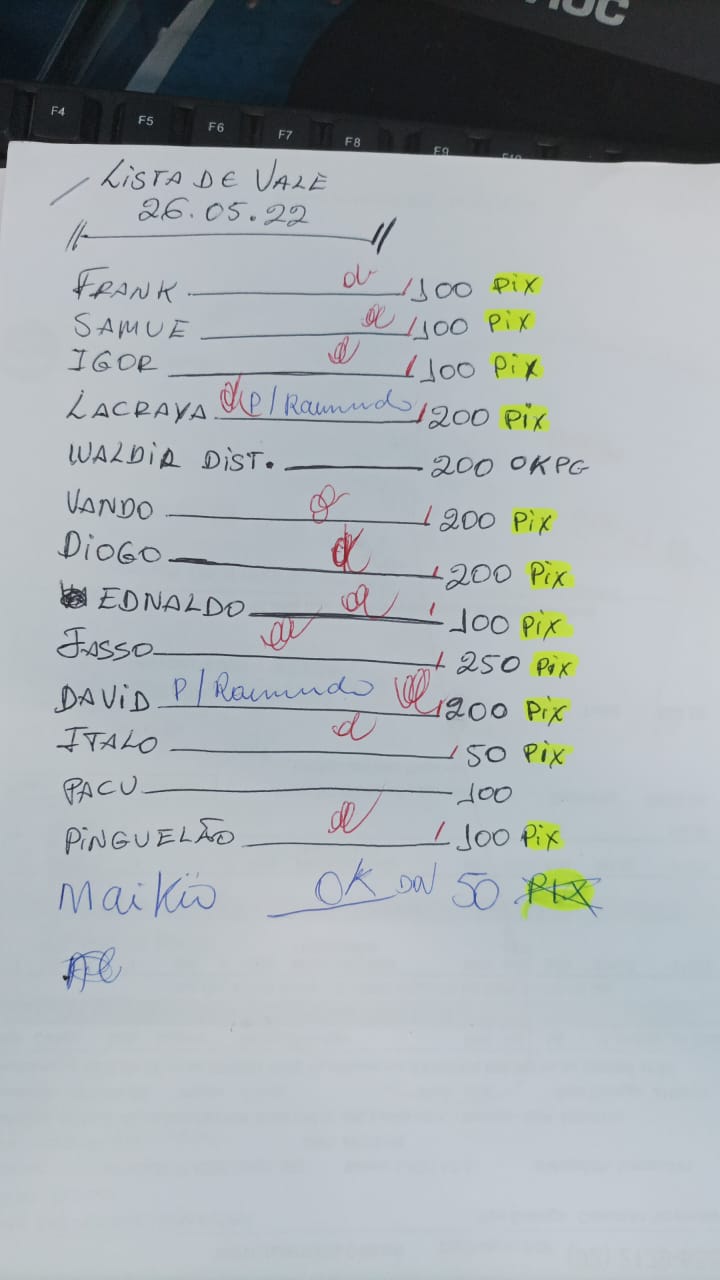 F4 F5 F6 F7 F8 F9
LISTA DE VALE
26.05.22
FRANK 100 PIX
SAMUE 100 PIX
IGOR 100 PIX
LACRAYA P/Raimundo 200 PIX
WALDIR DIST. 200 OKPG
VANDO 200 PIX
DIOGO 200 PIX
EDNALDO 100 PIX
JASSO 250 PIX
DAVID P/Raimundo 200 PIX
ITALO 50 PIX
PACU 100
PINGUELÃO 100 PIX
OK 50 PIX